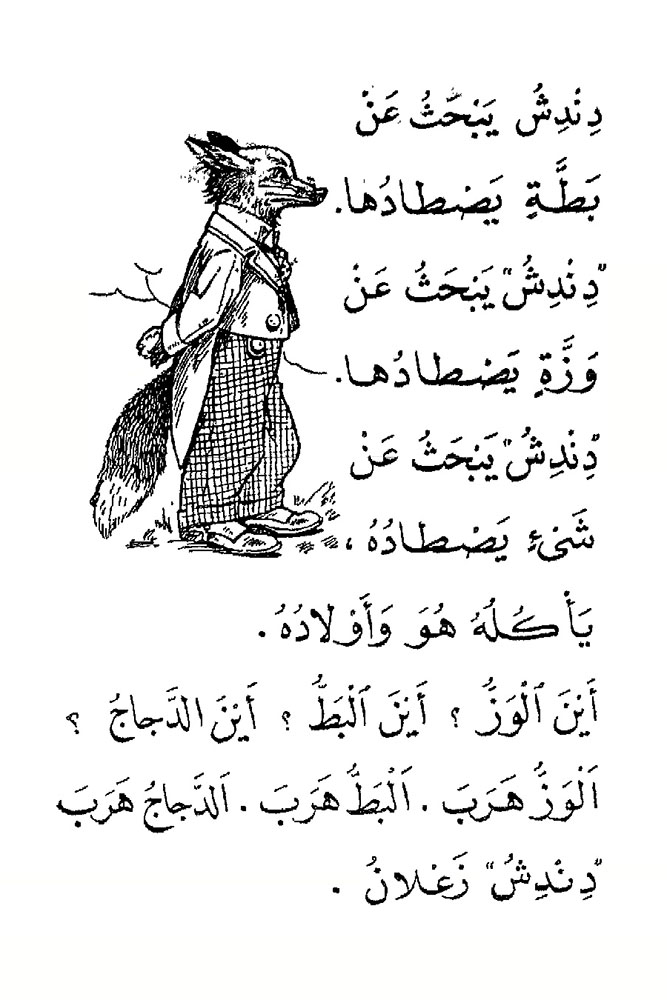 دِنْدِشُ يَبْحَثُ عَنْ
بَطَّةٍ يَصْطادُها.
"دِنْدِشُ" يَبْحَثُ عَنْ
وَزَّةٍ يَصْطادُها.
"دِنْدِشُ" يَبْحَثُ عَنْ
شَيْءٍ يَصْطادُهُ ،
يَأْكُلُهُ هُوَ وَأَوْلادُهُ .
أَيْنَ ٱلْوَزُّ ؟ أَيْنَ ٱلْبَطُّ ؟ أَيْنَ الدَّجاجُ ؟
اَلْوَزُّ هَرَبَ . اَلْبَطُّ هَرَبَ . اَلدَّجاجُ هَرَبَ
"دِنْدِشُ" زَعْلانُ .